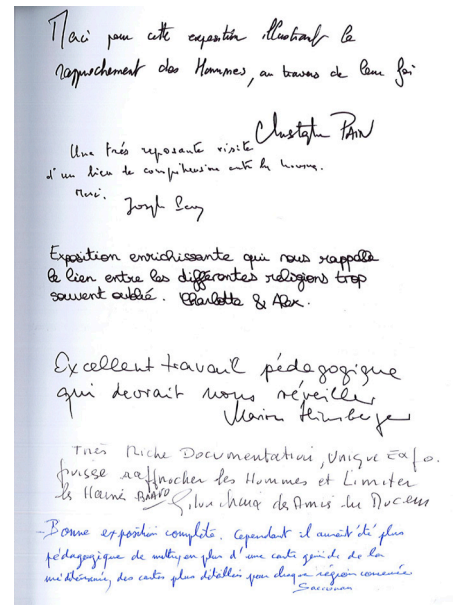 Merci pour cette exposition illustrant le
rapprochement des Hommes, au travers de leur foi
Christophe PAIN
Une très reposante visite
d'un lien de compréhension entre les hommes.
Merci.
Joseph
Exposition enrichissante qui nous rappelle
le lien entre les différentes religions trop
souvent oublié. Charlotte & Alex.
Excellent travail pédagogique
qui devrait nous réveiller
Marion
Très Riche Documentation, Unique Expo.
puisse rapprocher les Hommes et Limiter
la Haine BRAVO des Amis du Mucem
- Bonne exposition complète. Cependant il aurait été plus
pédagogique de mettre en plus d'une carte générale de la
méditerranée, des cartes plus détaillées pour chaque région concernée